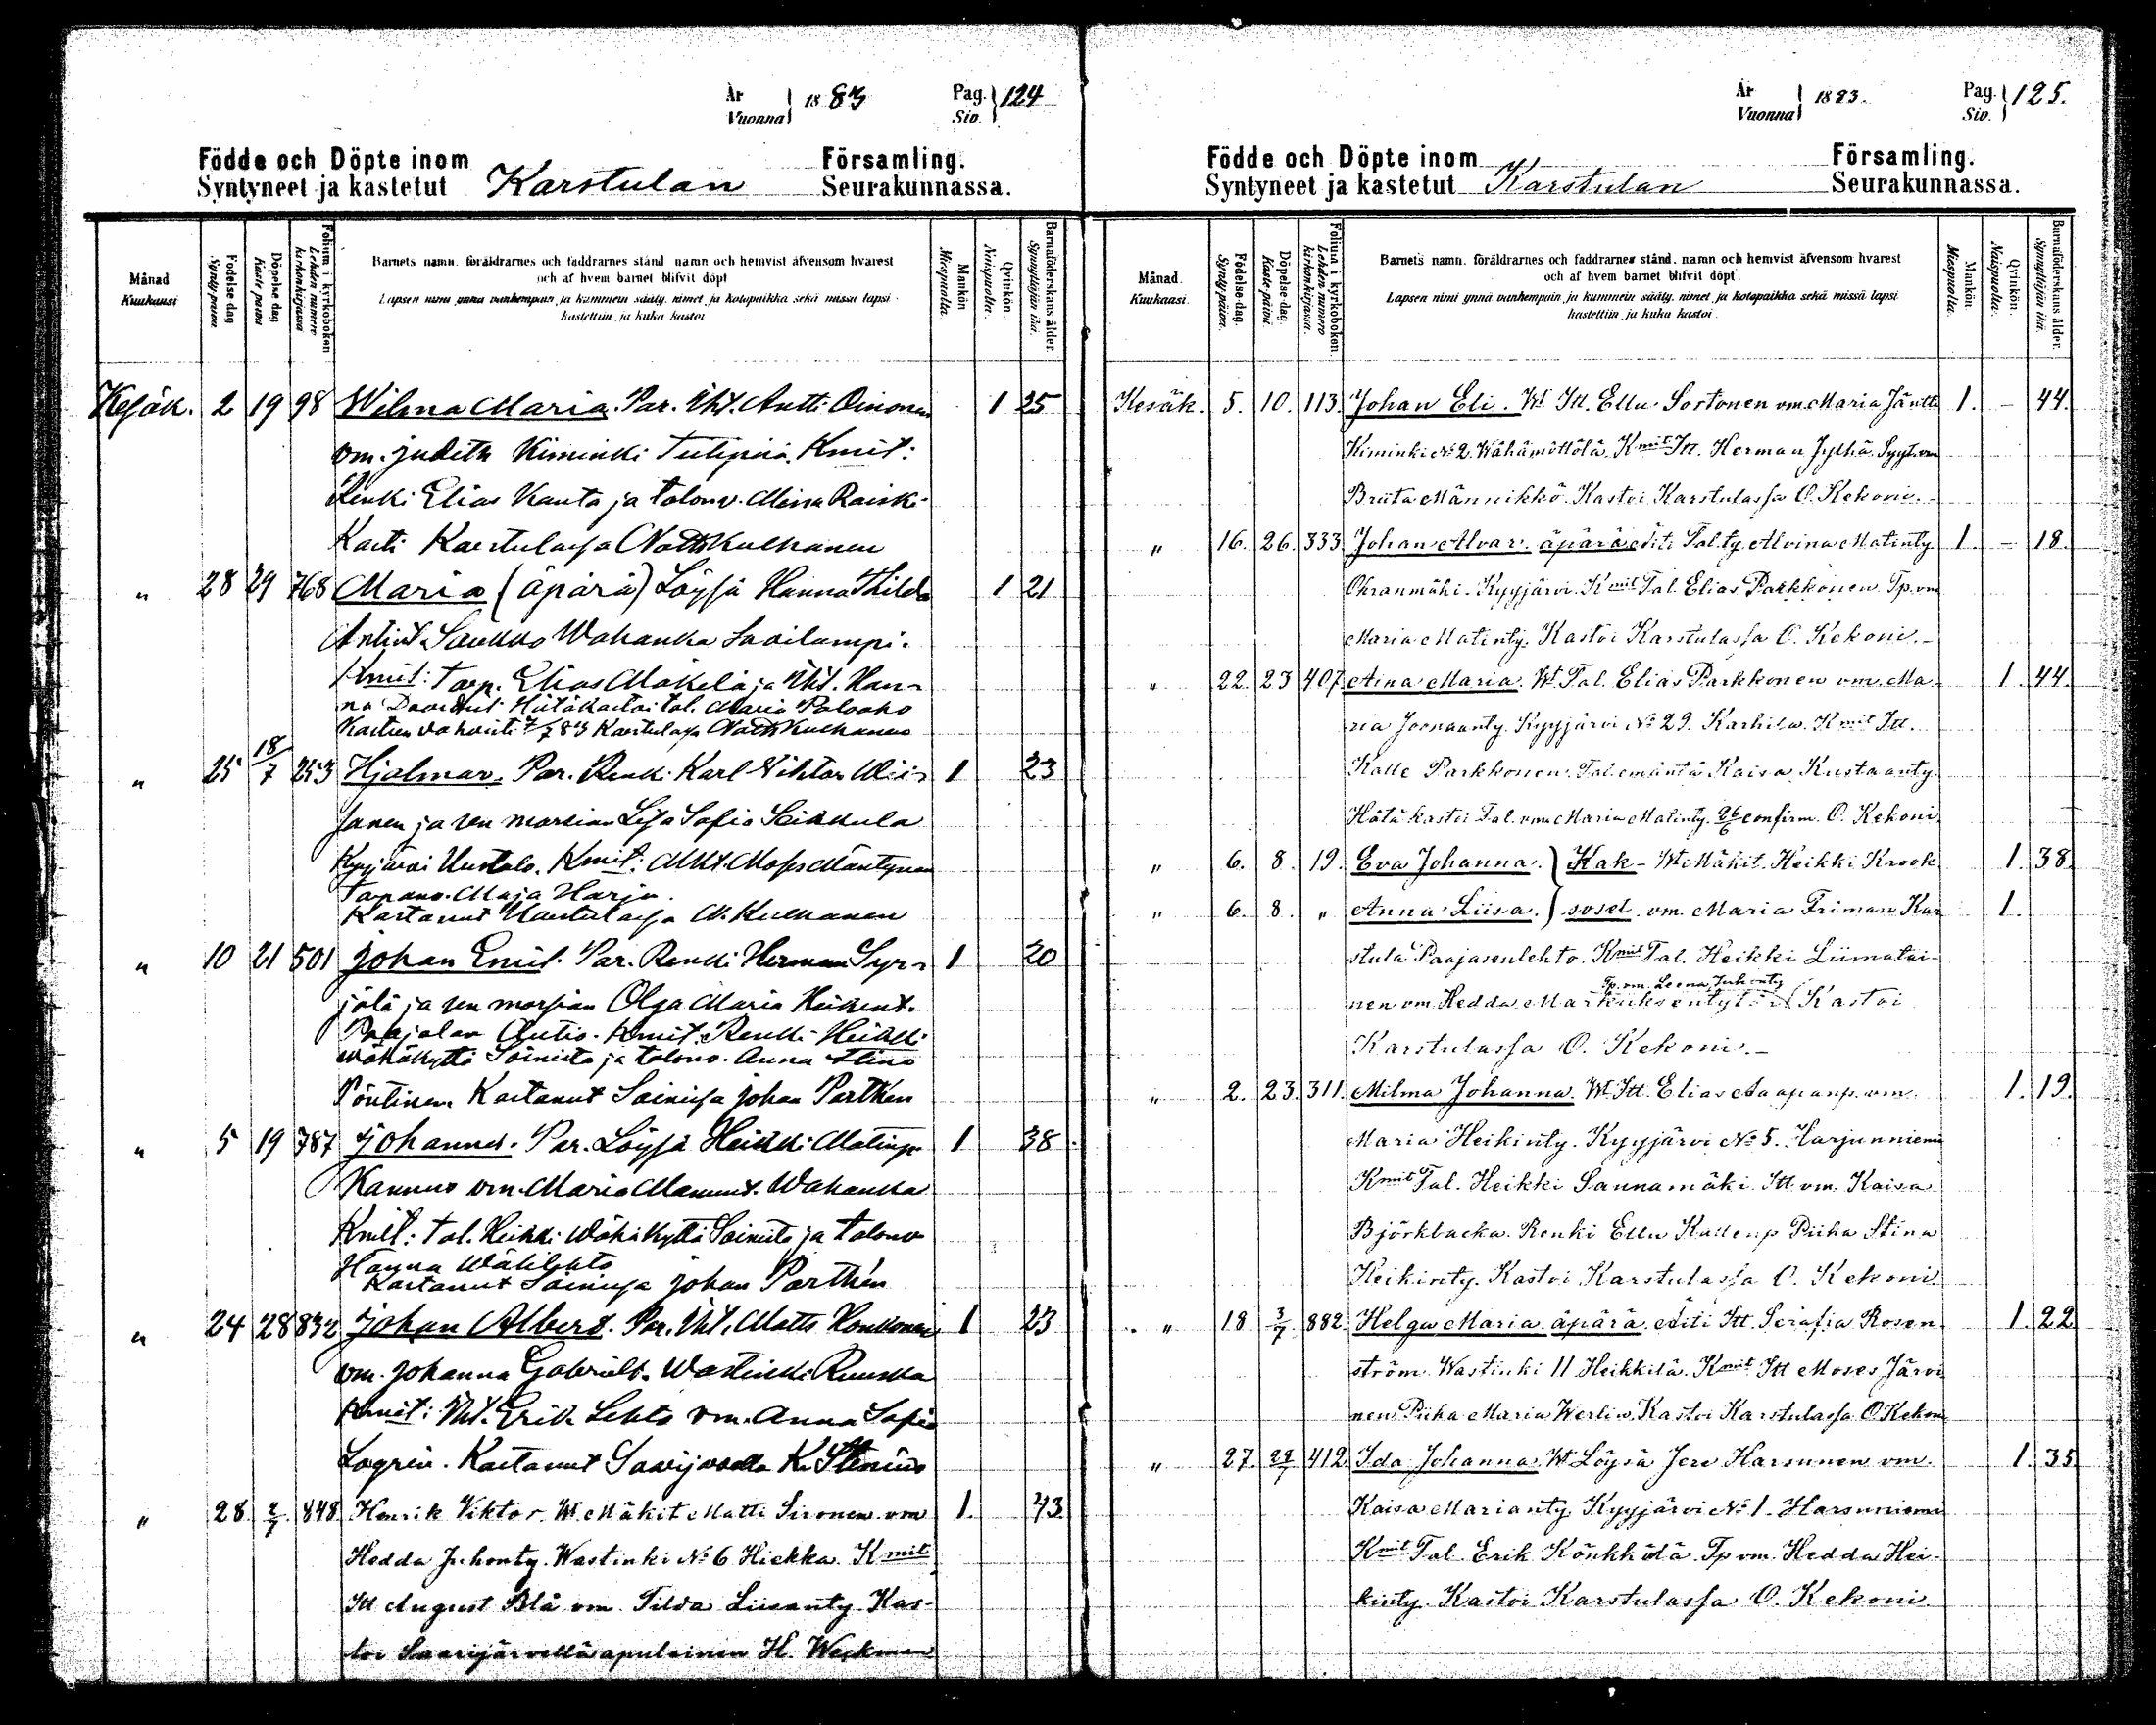 År
Vuonna 1883
Pag. 124
Siv.
Födde och Döpte inom Församling.
Syntyneet ja kastetut Karstulan Seurakunnassa.
Månad
Kuukausi
Födelse dag
Synty päivä
Döpelse dag
Kaste päivä
Folium i kyrkoboken
Lehden numero
kirkonkirjassa
Barnets namn. föräldrarnes och faddrarnes stånd namn och hemvist äfvensom hvarest
och af hvem barnet blifvit döpt
Lapsen nimi ynnä vanhempain ja kummein sääty, nimet ja kotopaikka sekä missä lapsi
kastettiin ja kuka kastoi
Mankön
Miespuolta.
Qvinkön.
Naispuolta.
Barnaföderskans ålder.
Synnyttäjän ikä.
Kesäk. 2 19 98 Wilma Maria. Par. Iht. Antti Oinonen 1 25
vm. Judith Kiminki Kmit:
Renki Elias Kauto ja talonv. Miina Raiski
Kasti Karstulassa Matts Kulhanen
" 28 29 768 Maria (äpärä) Löysä Hanna Thilda 1 21
Antint. Saukko Wahanka Savilampi.
Kmit: Torp. Elias Mäkelä ja Iht. Han-
na Hätäkastoi tal. Maria Paloaho
Kasteen vahvisti 7/7 83 Karstulassa Matts Kulhanen
" 25 18/7 253 Hjalmar. Par. Renki Karl Viktor Wii- 1 23
sanen ja sen morsian Lisa Sofia Leikkula
Kyyjärvi Uustalo. Kmit: Mäkit. Moses Mäntynen
Tapanv. Maja Harju.
Kastanut Karstulassa M. Kulhanen
" 10 21 501 Johan Emil. Par. Renki Herman Syr- 1 20
jälä ja sen morsian Olga Maria Heikint.
Paajalan Autio. Kmit: Renki Heikki
Wähäkyttä Soinista ja talonv. Anna Stina
Pöntinen. Kastanut Soinissa Johan Parthen
" 5 19 787 Johannes. Par. Löysä Heikki Matinp. 1 38
Kannus vm. Maria Wahanka
Kmit: tal. Heikki Wähäkyttä Soinista ja talonv
Hanna Wählehto
Kastanut Soinissa Johan Parthén
" 24 28 832 Johan Albert. Par. Iht. Matts Honkonen 1 23
vm. Johanna Gabrielt. Wastinki Ruuska
Kmit: Iht. Erik Lehto vm. Anna Sofia
Logrén. Kastanut Saarijärvellä K. Stenius
" 28 2/7 848 Henrik Viktor. Wt. Mäkit Matti Sironen vm 1. 43
Hedda Juhonty. Wastinki No 6 Hiekka. Kmit
Itt August Blå vm. Tilda Liisanty. Kas-
toi Saarijärvellä apulainen H. Weckman
År
Vuonna 1883.
Pag. 125.
Siv.
Födde och Döpte inom Församling.
Syntyneet ja kastetut Karstulan Seurakunnassa.
Månad.
Kuukaasi.
Födelse dag.
Synty päivä.
Döpelse dag.
Kaste päivä.
Folium i kyrkoboken.
Lehden numero
kirkonkirjassa.
Barnets namn. föräldrarnes och faddrarnes stånd. namn och hemvist äfvensom hvarest
och af hvem barnet blifvit döpt.
Lapsen nimi ynnä vanhempain ja kummein sääty. nimet. ja kotopaikka sekä missä lapsi
kastettiin ja kuka kastoi.
Mankön
Miespuolta.
Qvinkön.
Naispuolta.
Barnaföderskans ålder.
Synnyttäjän ikä.
Kesäk. 5. 10. 113 Johan Eli. Wt Itt. Ellu Sortonen vm. Maria Jäntti 1. - 44.
Kiminki No 2. Wähämöttölä. Kmit Itt. Herman Jylhä. Syyt. vm
Briita Männikkö. Kastoi Karstulassa O. Kekoni.
" 16. 26. 333 Johan Alvar. äpärä. äiti Tal. ty. Alvina Matinty 1. - 18.
Ohranmäki. Kyyjärvi. Kmit Tal. Elias Parkkonen Tp. vm
Maria Matinty. Kastoi Karstulassa O. Kekoni.
" 22. 23 407 Aina Maria. Wt. Tal. Elias Parkkonen vm. Ma- 1. 44.
ria Joonaanty. Kyyjärvi No 29. Karhila. Kmit Itt.
Kalle Parkkonen. Tal. emäntä Kaisa Kustaanty.
Hätäkastoi Tal. vm Maria Matinty. 26/6 confirm. O. Kekoni
" 6. 8. 19. Eva Johanna. } Kak- Wt. Mäkit. Heikki Krook 1. 38.
" 6. 8. " Anna Liisa. } soset vm. Maria Friman. Kar 1.
stula Paajasenlehto. Kmit Tal. Heikki Liimatai-
Tp. vm. Leena Juhonty
nen vm. Hedda Kastoi
Karstulassa O. Kekoni.
" 2. 23. 311. Milma Johanna. Wt. Itt. Elias Aaapanp. vm. 1. 19.
Maria Heikinty. Kyyjärvi No 5. Harjunniemi
Kmit Tal. Heikki Sannamäki Itt. vm. Kaisa
Björkbacka. Renki Ellu Kallenp Piika Stina
Heikinty. Kastoi Karstulassa O. Kekoni.
" 18 3/7 882. Helga Maria. äpärä äiti Itt. Serafia Rosen- 1. 22
ström Wastinki 11 Heikkilä. Kmit Itt Moses Järvi
nen Piika Maria Werlin. Kastoi Karstulassa O Kekoni
" 27 29/7 412. Ida Johanna. Wt Löysä Jere Harsunen vm. 1. 35
Kaisa Marianty. Kyyjärvi No 1. Harsuniemi
Kmit Tal. Erik Könkkölä. Tp vm. Hedda Hei-
kinty. Kastoi Karstulassa O. Kekoni.